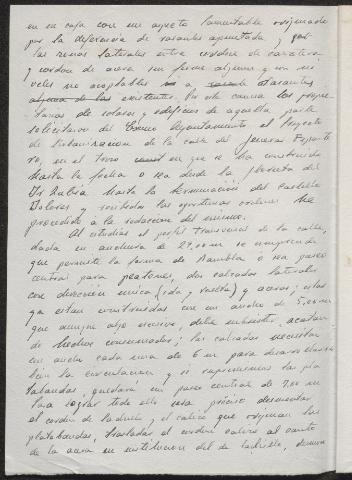 en su caja con un aspecto lamentable originado
por la diferencia de rasantes apuntada y por
las zonas laterales entre cordón de carretera
y cordon de acera sin firme alguno y con ni
veles no aceptables a atarazantes
existentes. Por esta causa los propie
tarios de solares y edificios de aquella parte
solicitaron del Excmo Ayuntamiento el Proyecto
de Urbanización de la calle del General Esparte
ro, en el trozo en que se ha construido
hasta la fecha o sea desde la plazuela del
Dr Rubia hasta la terminación del Castillo
Dolores y recibidas las oportunas ordenes he
procedido a la redacción del mismo.
Al estudiar el perfil transversal de la calle,
dada su anchura de 29,00 m se comprende
que permite la forma de Rambla o sea paseo
central para peatones, dos calzadas laterales
con dirección única (ida y vuelta) y aceras; estas
ya estan construidas con un ancho de 5,00 m
que aunque algo excesivo, debe subsistir, acatan
do hechos consumados; las calzadas necesitan
un ancho cada una de 6 m para desarrollarse
bien la circulación y si suprimimos las pla
tabandas, quedará un paseo central de 7,00 m
Para lograr todo ello será preciso desmontar
el cordón de ladrillo, el calice que originan las
platabandas, trasladar el cordón calizo al canto
de la acera en sustitución del de ladrillo,